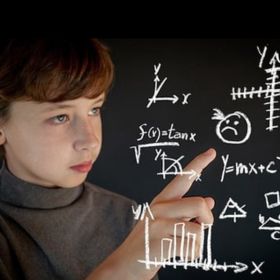 Y
Y
X
f(x)=tanx
√
Y
X
Y=mx+c
Y
X
C